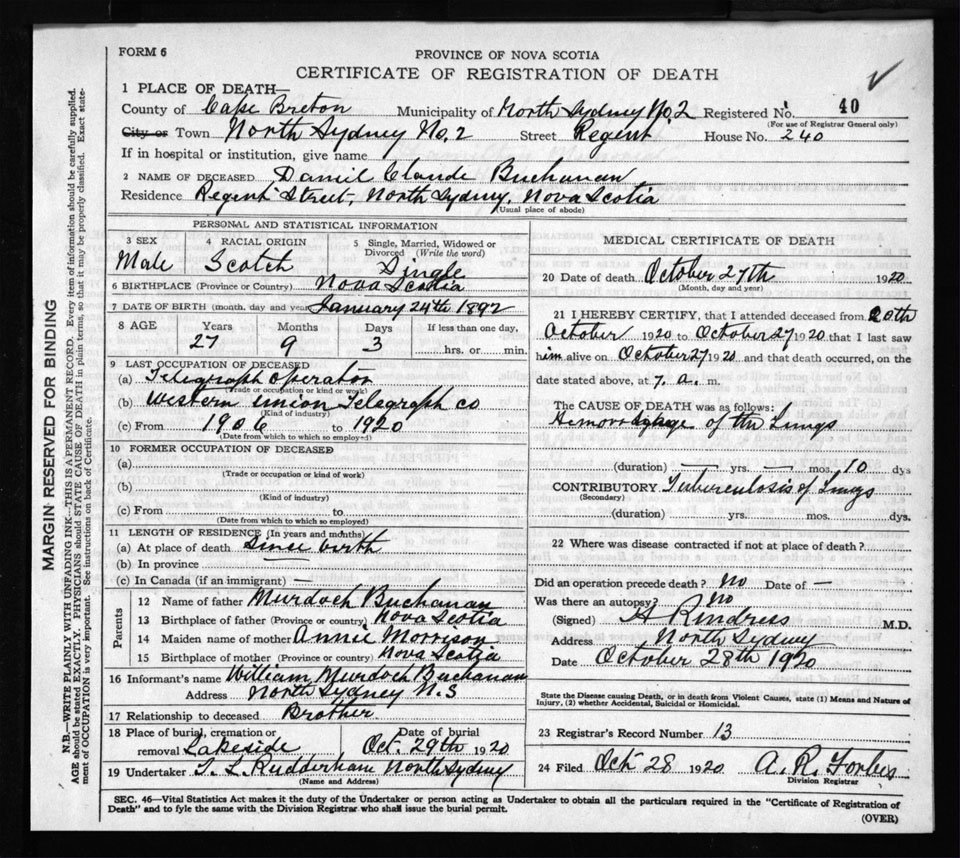 FORM 6
PROVINCE OF NOVA SCOTIA
CERTIFICATE OF REGISTRATION OF DEATH
1 PLACE OF DEATH—
County of Cape Breton Municipality of North Sydney No.2 Registered No. 40
(For use of Registrar General only)
City or Town North Sydney No. 2 Street Regent House No. 240
If in hospital or institution, give name
2 NAME OF DECEASED Daniel Claude Buchanan
Residence Regent Street, North Sydney, Nova Scotia
(Usual place of abode)
PERSONAL AND STATISTICAL INFORMATION
3 SEX Male
4 RACIAL ORIGIN Scotch
5 Single, Married, Widowed or Divorced (Write the word) Single
6 BIRTHPLACE (Province or Country) Nova Scotia
7 DATE OF BIRTH (month, day and year) January 24th 1892
8 AGE Years Months Days If less than one day,
27 9 3 ....hrs. or.... min.
9 LAST OCCUPATION OF DECEASED
(a) Telegraph Operator
(Trade or occupation or kind of work)
(b) Western Union Telegraph Co
(Kind of industry)
(c) From 1906 to 1920
(Date from which to which so employed)
10 FORMER OCCUPATION OF DECEASED
(a)
(Trade or occupation or kind of work)
(b)
(Kind of industry)
(c) From to
(Date from which to which so employed)
11 LENGTH OF RESIDENCE (In years and months)
(a) At place of death Since birth
(b) In province
(c) In Canada (if an immigrant) —
Parents
12 Name of father Murdoch Buchanan
13 Birthplace of father (Province or country) Nova Scotia
14 Maiden name of mother Annie Morrison
15 Birthplace of mother (Province or country) Nova Scotia
16 Informant's name William Murdoch Buchanan
Address North Sydney N.S
17 Relationship to deceased Brother
18 Place of burial, cremation or removal Lakeside
Date of burial Oct. 29th 1920
19 Undertaker T. L. Rudderham North Sydney
(Name and Address)
MEDICAL CERTIFICATE OF DEATH
20 Date of death October 27th 1920
(Month, day and year)
21 I HEREBY CERTIFY, that I attended deceased from 20th
October 1920 to October 27 1920 that I last saw
him alive on October 27 1920 and that death occurred, on the
date stated above, at 7. a. m.
The CAUSE OF DEATH was as follows:
of the Lungs
(duration) — yrs. — mos. 10 dys
CONTRIBUTORY Tuberculosis of Lungs
(Secondary)
(duration) yrs. mos. dys.
22 Where was disease contracted if not at place of death?
Did an operation precede death? No Date of —
Was there an autopsy? No
(Signed) H M.D.
Address North Sydney
Date October 28th 1920
State the Disease causing Death, or in death from Violent Causes, state (1) Means and Nature of
Injury, (2) whether Accidental, Suicidal or Homicidal.
23 Registrar's Record Number 13
24 Filed Oct 28 1920 A. R. Forbes
Division Registrar
SEC. 46—Vital Statistics Act makes it the duty of the Undertaker or person acting as Undertaker to obtain all the particulars required in the "Certificate of Registration of
Death" and to fyle the same with the Division Registrar who shall issue the burial permit.
(OVER)
MARGIN RESERVED FOR BINDING
N.B.—WRITE PLAINLY WITH UNFADING INK—THIS IS A PERMANENT RECORD. Every item of information should be carefully supplied.
AGE should be stated EXACTLY. PHYSICIANS should STATE CAUSE OF DEATH in plain terms, so that it may be properly classified. Exact state-
ment of OCCUPATION is very important. See instructions on back of Certificate.